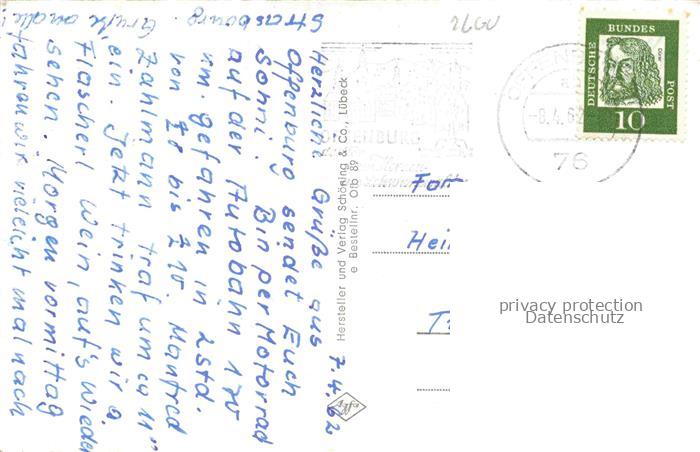 7.4.62
Herzliche Grüße aus
Offenburg sendet Euch
Sohni. Bin per Motorrad
auf der Autobahn 120
km. gefahren in 2 Std.
von 8 bis 10. Manfred
Zahlmann traf um ca 11"
ein. Jetzt trinken wir a.
Flascherl Wein, auf's Wieder
sehen. Morgen vormittag
fahren wir vieleicht mal nach
Strasbourg. Grüße an alle!
Hersteller und Verlag Schöning & Co., Lübeck
e Bestellnr. Ofb 89
Agfa
OFFENBURG
-8.4.62
76
DEUTSCHE
BUNDES
POST
Dürer
10
Hei
privacy protection
Datenschutz